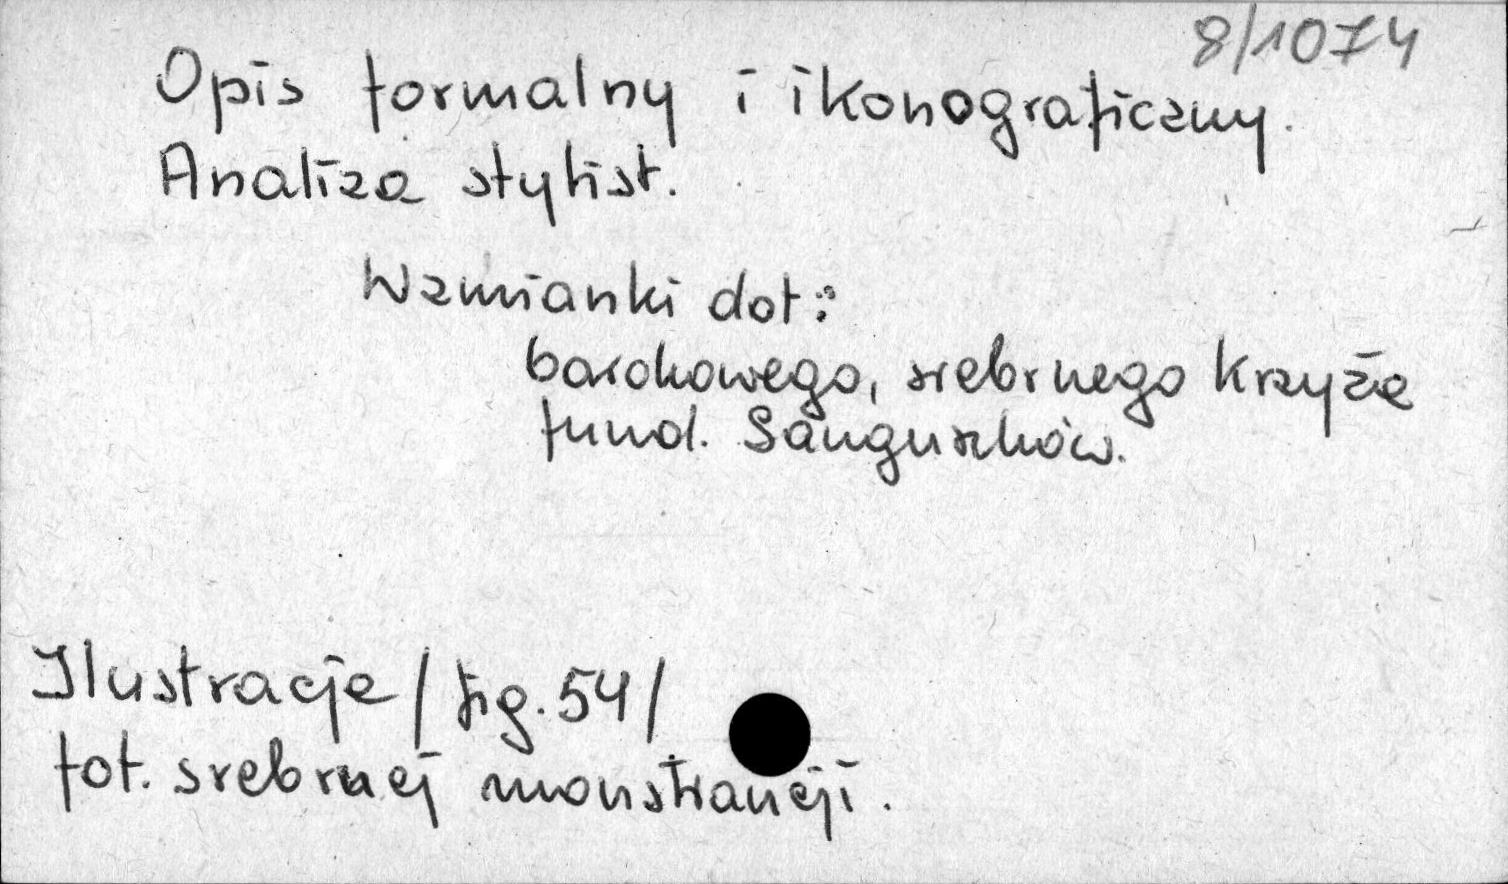 8/1074
Opis formalny i ikonograficzny.
Analiza stylist.
Wzmianki dot:
barokowego, srebrnego krzyża
fund. Sanguszków.
Ilustracje / fig. 54 /
fot. srebrnej monstrancji.